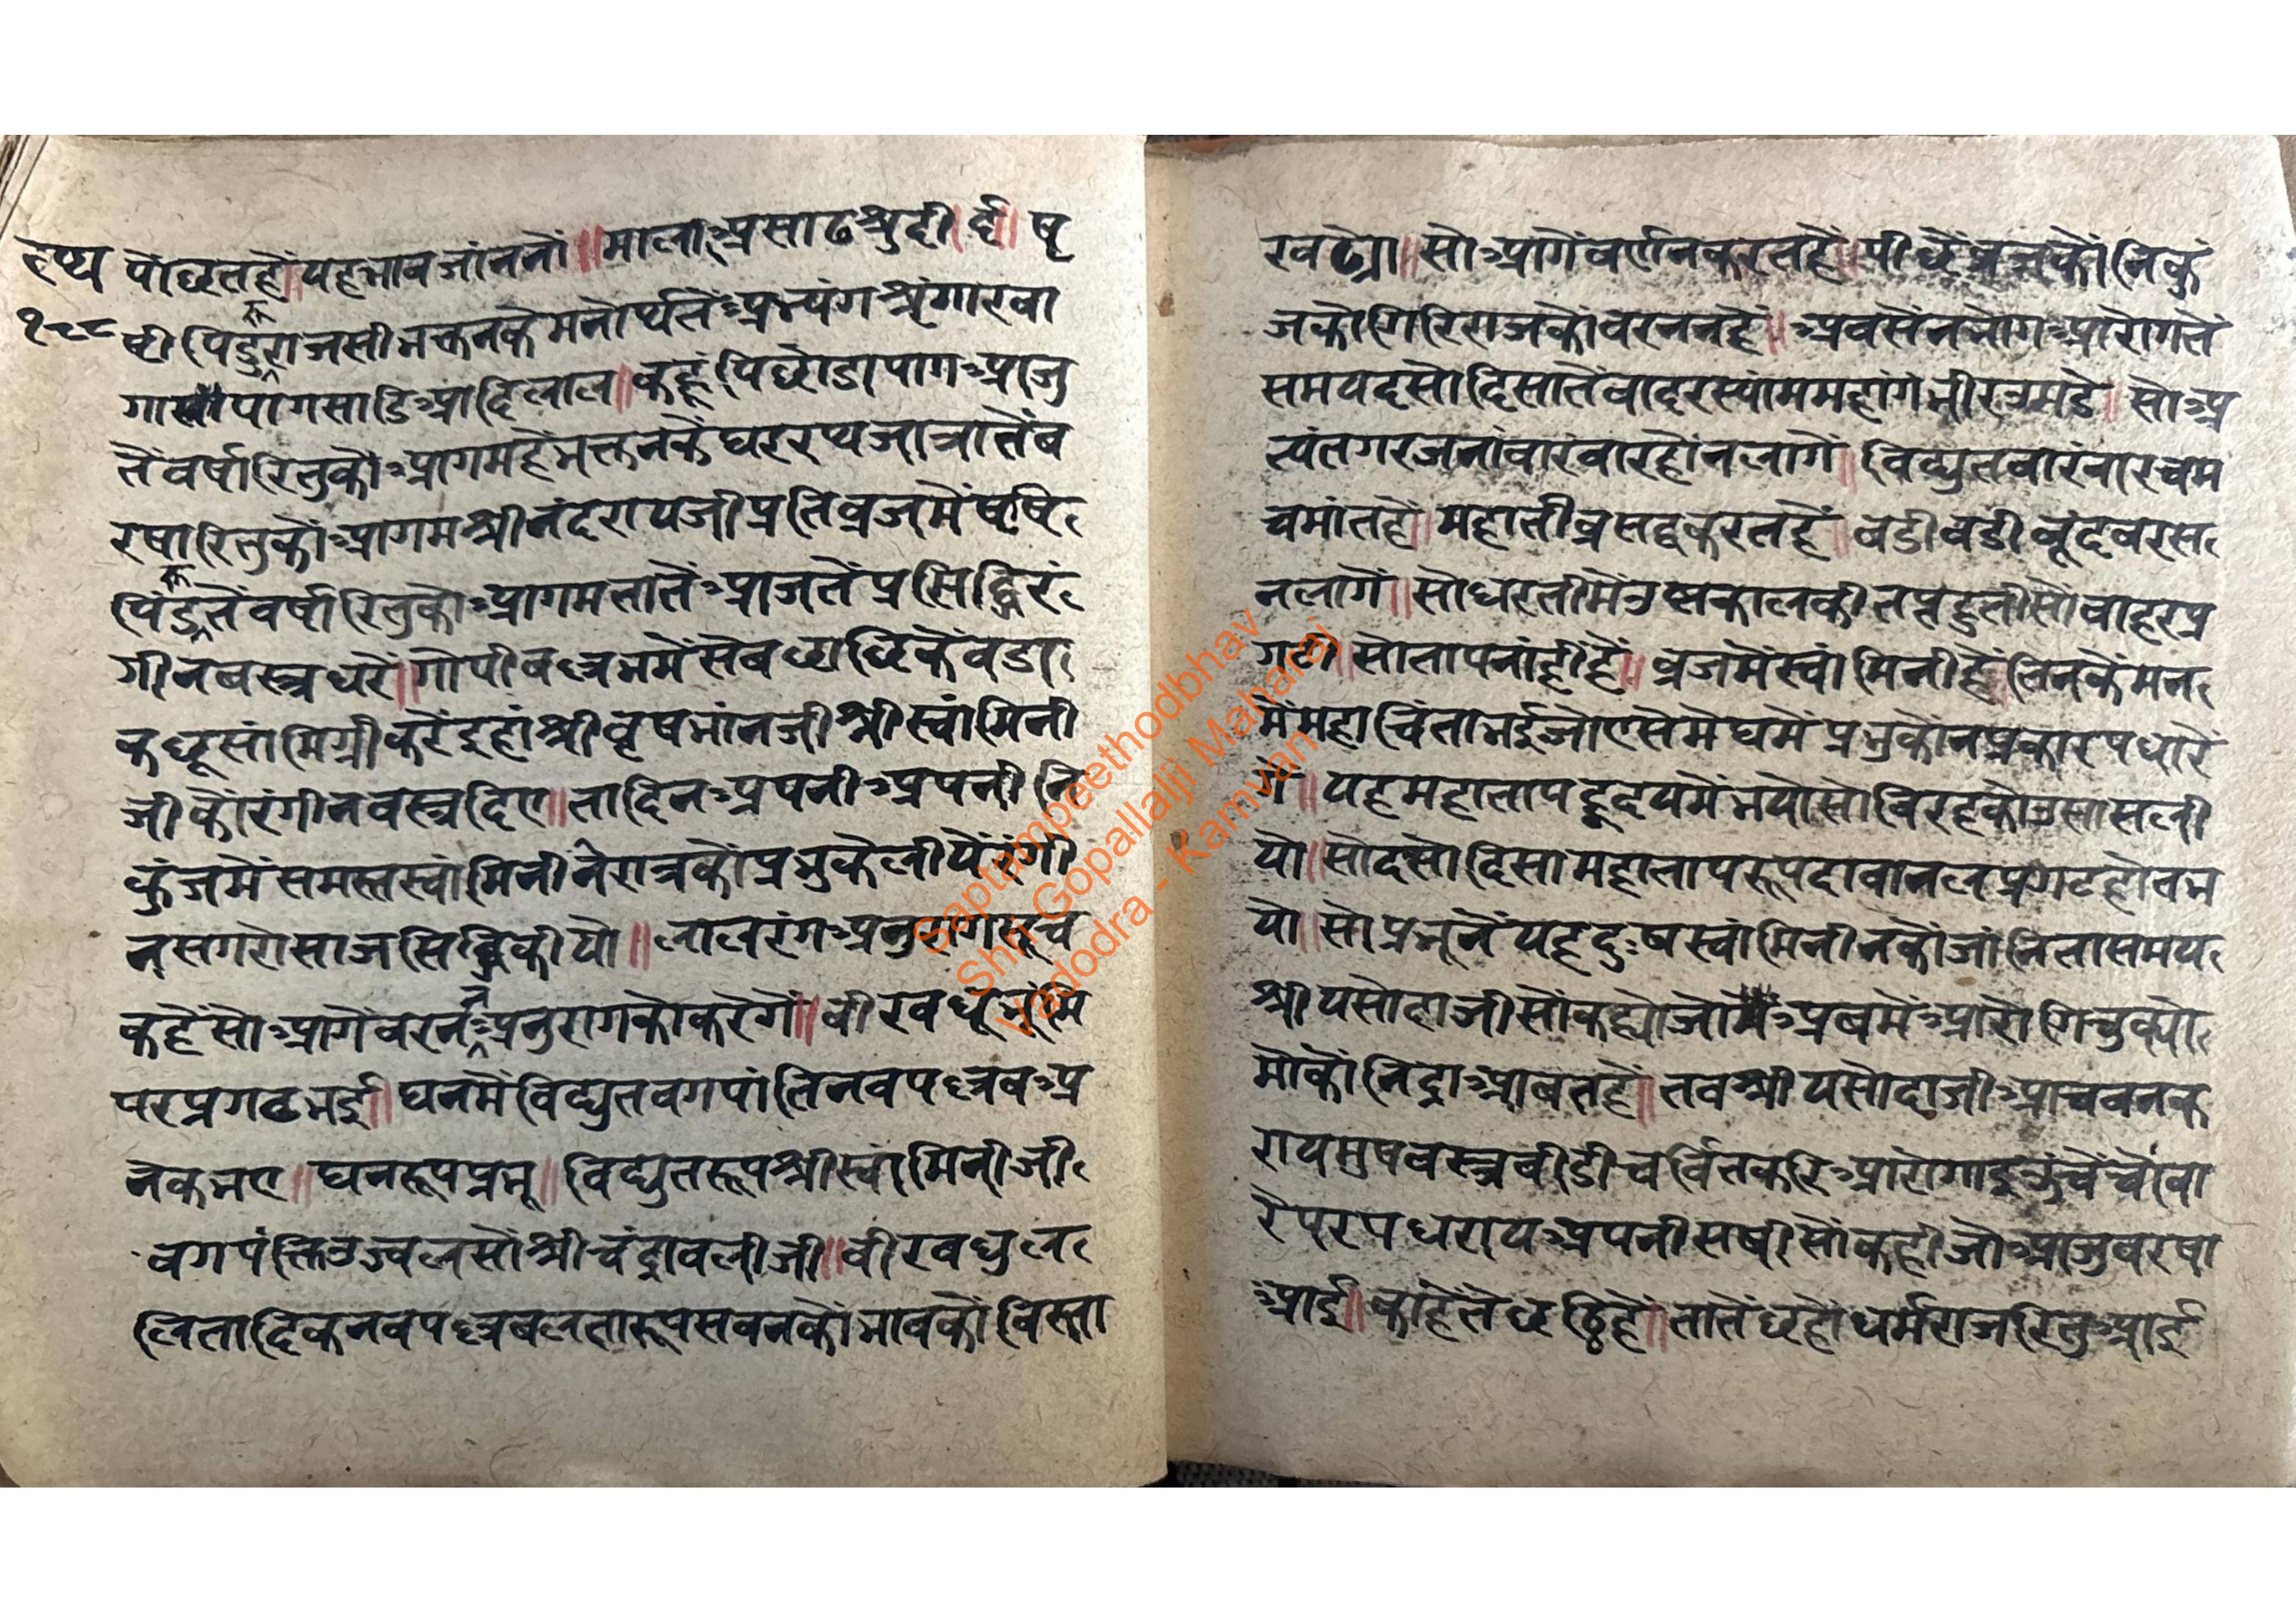 हृष्ण
१८८
पोंछतहों॥यहभावजांननों॥मालाअसाढश्रुदी॥ई॥षृ
ष्टी पिडुंरूराजसीभक्तनकेमनोर्थतेंअभ्यंगश्रृंगारवा
गाखीपागसाडिआदिलाल॥कहूंपिछोडापागआजु
तेंवर्षारितुकौआगमहैभक्तनकेंघररथजात्रातेंब
रषारितुकौंआगमश्रीनंदरायजीप्रतिव्रजमेंषृषि
पिंडुरूतेंवर्षारितुकौआगमतातेंआजतेंप्रसिद्धिरं
गीनबस्त्रधरें॥गोपीवल्लभमेंसेबछाछिकेंवडा
कछूसांमिग्रीकरेंइहांश्रीवृषभांनजीश्रीस्वांमिनी
जीकोंरंगीनवस्त्रदिए॥तादिनअपनीअपनीनि
कुंजमेंसमस्तस्वांमिनीनेरात्रकोंप्रभुकेलीयेंरंगी
नसगरोसाजसिद्धिकीयौ॥लालरंगअनुरागसूच
कहैंसोआगेंवरननअनुरागकोकरेंगें॥वीरवधूभूंमि
परप्रगटभई॥घनमेंविद्युतवगपांतिनवपल्लवअ
नेकभए॥घनरूपप्रभू॥विद्युतरूपश्रीस्वांमिनीजी
वगपंक्तिउज्वलसोंश्रीचंद्रावलीजी॥वीरवधुल
लितादिकनवपल्लवलतारूपसवनकोंभावकोंविस्ता
रवढ्यो॥सोआगेंवर्णनकरतहैं॥पीछेंव्रजकोंनिकुं
जकौगिरिराजकौंवरननहैं॥अवसेंनभोगआरोगतें
समयदसोदिसातेंवादरस्यांममहांगंभीरउमडे॥सोअ
त्यंतगरजनांवारंवारहोंनलागें॥विद्युतवारंवारचम
चमांतहैं॥महातीव्रसब्दकरतहैं॥बडीबडीबूंदवरस
नलागें॥सोधरतीमेंउष्णकालकीतप्तहुतीसोंवाहरप्र
गटी॥सोतापनांहींहैं॥व्रजमेंस्वांमिनीहैंतिनकेंमन
मेंमहाचिंताभईजोएसेमेघमेंप्रभुकोंनप्रकारपधारें
गें॥यहमहातापहृदयमेंभयोसोविरहकौउसासली
यो॥सोदसोदिसामहातापरूपदावानलप्रगटहोतभ
यो॥सोप्रभूनेंयहदुःषस्वांमिनीनकोंजांनितासमय
श्रीयसोदाजीसोंकह्योजोमेंअबमेंआरोगिचुक्यो
मोकोंनिद्राआबतहैं॥तवश्रीयसोदाजीआचवनक
रायमुषवस्त्रवीडीचर्वितकरिआरोगाइऊंचेंचौंवा
रेंपरपधरायअपनीसषीसोंकहीजोआजुवरषा
आई॥काहेतेंछठिहैं॥तातेंछहोंधर्मराजरितुआई
Saptampeethodbhav
Shri Gopallalji Maharaj
Vadodra - Kamvan